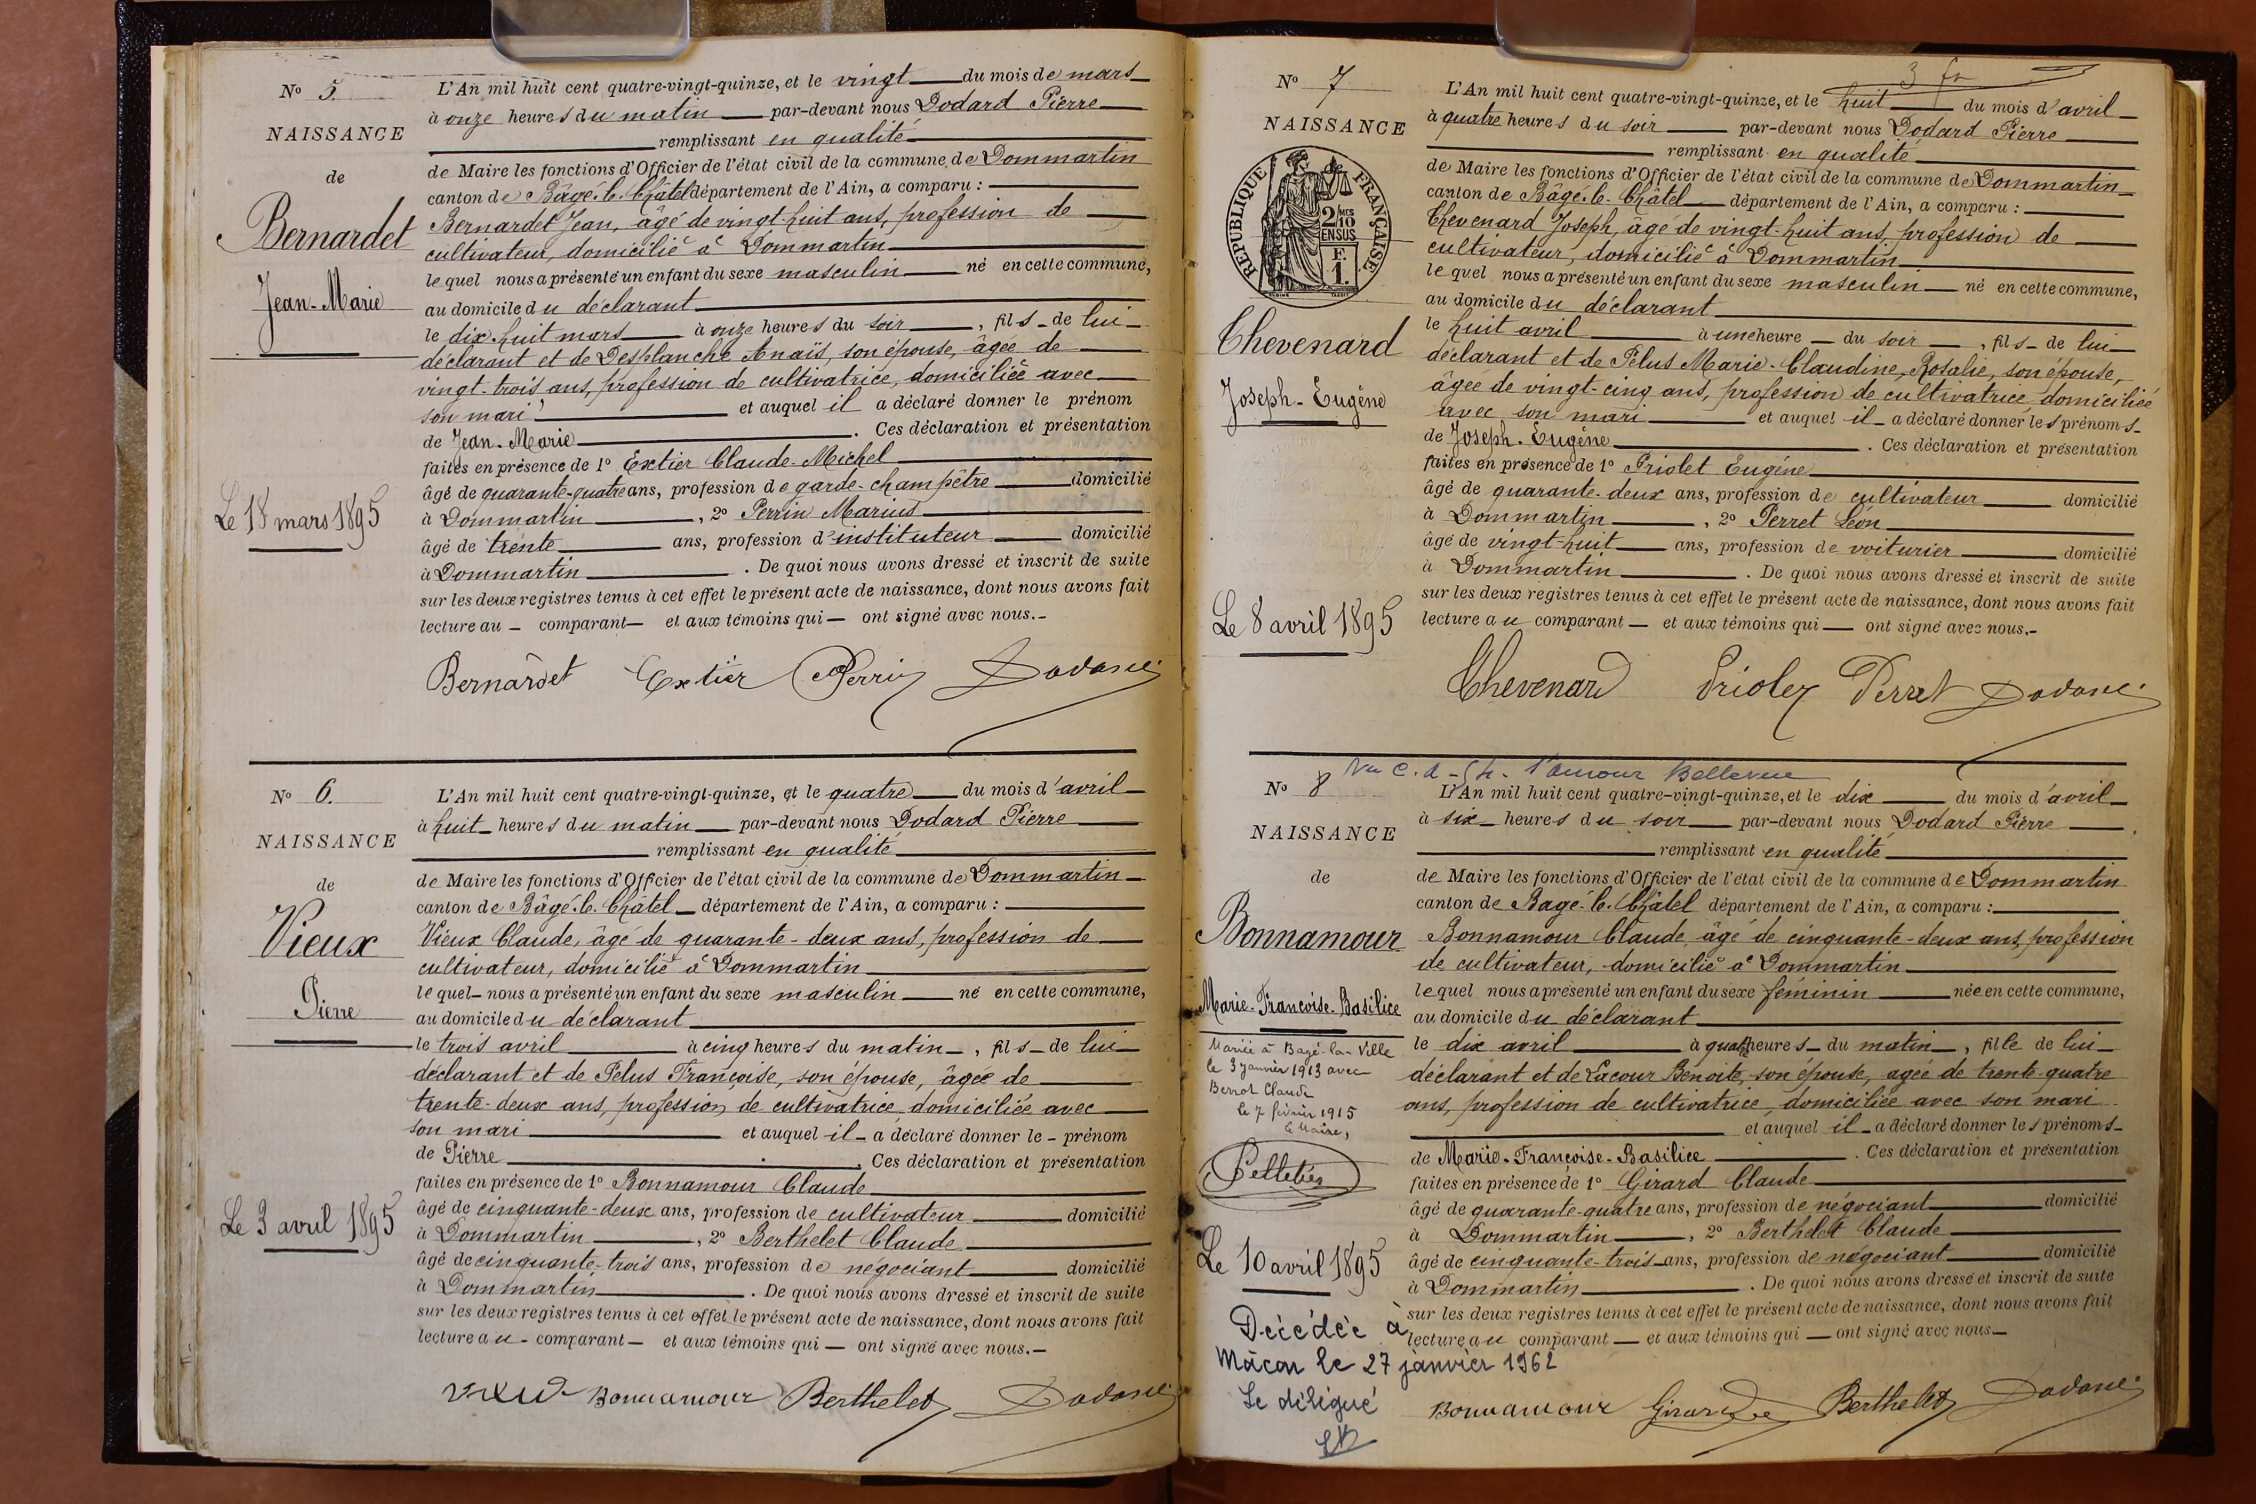 N° 5.
NAISSANCE
de
Bernardet
Jean-Marie
Le 18 mars 1895
L'An mil huit cent quatre-vingt-quinze, et le vingt du mois de mars
à onze heures du matin par-devant nous Dodard Pierre
remplissant en qualité
de Maire les fonctions d'Officier de l'état civil de la commune de Dommartin
canton de Bâgé-le-Châtel département de l'Ain, a comparu :
Bernardet Jean, âgé de vingt-huit ans, profession de
cultivateur, domicilié à Dommartin
lequel nous a présenté un enfant du sexe masculin né en cette commune,
au domicile du déclarant
le dix-huit mars à onze heures du soir, fils de lui
déclarant et de Desplanche Anaïs, son épouse, âgée de
vingt-trois ans, profession de cultivatrice, domiciliée avec
son mari et auquel il a déclaré donner le prénom
de Jean-Marie. Ces déclaration et présentation
faites en présence de 1° Extier Claude-Michel
âgé de quarante-quatre ans, profession de garde-champêtre domicilié
à Dommartin, 2° Perrin Marius
âgé de trente ans, profession d'instituteur domicilié
à Dommartin. De quoi nous avons dressé et inscrit de suite
sur les deux registres tenus à cet effet le présent acte de naissance, dont nous avons fait
lecture au comparant et aux témoins qui ont signé avec nous.
Bernardet Extier Perrin Dodard
N° 6.
NAISSANCE
de
Vieux
Pierre
Le 3 avril 1895
L'An mil huit cent quatre-vingt-quinze, et le quatre du mois d'avril
à huit heures du matin par-devant nous Dodard Pierre
remplissant en qualité
de Maire les fonctions d'Officier de l'état civil de la commune de Dommartin
canton de Bâgé-le-Châtel département de l'Ain, a comparu :
Vieux Claude, âgé de quarante-deux ans, profession de
cultivateur, domicilié à Dommartin
lequel nous a présenté un enfant du sexe masculin né en cette commune,
au domicile du déclarant
le trois avril à cinq heures du matin, fils de lui
déclarant et de Pelus Françoise, son épouse, âgée de
trente-deux ans, profession de cultivatrice domiciliée avec
son mari et auquel il a déclaré donner le prénom
de Pierre. Ces déclaration et présentation
faites en présence de 1° Bonnamour Claude
âgé de cinquante-deux ans, profession de cultivateur domicilié
à Dommartin, 2° Berthelet Claude
âgé de cinquante-trois ans, profession de négociant domicilié
à Dommartin. De quoi nous avons dressé et inscrit de suite
sur les deux registres tenus à cet effet le présent acte de naissance, dont nous avons fait
lecture au comparant et aux témoins qui ont signé avec nous.
Vieux Bonnamour Berthelet Dodard
N° 7
NAISSANCE
de
RÉPUBLIQUE FRANÇAISE
2 MES
10
EN SUS
F.
1.
Chevenard
Joseph-Eugène
Le 8 avril 1895
L'An mil huit cent quatre-vingt-quinze, et le huit du mois d'avril
à quatre heures du soir par-devant nous Dodard Pierre
remplissant en qualité
de Maire les fonctions d'Officier de l'état civil de la commune de Dommartin
canton de Bâgé-le-Châtel département de l'Ain, a comparu :
Chevenard Joseph, âgé de vingt-huit ans, profession de
cultivateur, domicilié à Dommartin
lequel nous a présenté un enfant du sexe masculin né en cette commune,
au domicile du déclarant
le huit avril à une heure du soir, fils de lui
déclarant et de Pelus Marie-Claudine-Rosalie, son épouse,
âgée de vingt-cinq ans, profession de cultivatrice domiciliée
avec son mari et auquel il a déclaré donner les prénoms
de Joseph-Eugène. Ces déclaration et présentation
faites en présence de 1° Priolet Eugène
âgé de quarante-deux ans, profession de cultivateur domicilié
à Dommartin, 2° Perret Léon
âgé de vingt-huit ans, profession de voiturier domicilié
à Dommartin. De quoi nous avons dressé et inscrit de suite
sur les deux registres tenus à cet effet le présent acte de naissance, dont nous avons fait
lecture au comparant et aux témoins qui ont signé avec nous.
Chevenard Priolet Perret Dodard
N° 8
NAISSANCE
de
Bonnamour
Marie-Françoise-Basilice
Mariée à Bagé-la-Ville
le 3 janvier 1913 avec
Bernot Claude
le 7 février 1915
le Maire,
Pelletier
Le 10 avril 1895
Décédée à
Mâcon le 27 janvier 1962
Le délégué
L'An mil huit cent quatre-vingt-quinze, et le dix du mois d'avril
à six heures du soir par-devant nous Dodard Pierre
remplissant en qualité
de Maire les fonctions d'Officier de l'état civil de la commune de Dommartin
canton de Bagé-le-Châtel département de l'Ain, a comparu :
Bonnamour Claude âgé de cinquante-deux ans, profession
de cultivateur, domicilié à Dommartin
lequel nous a présenté un enfant du sexe féminin née en cette commune,
au domicile du déclarant
le dix avril à quatre heures du matin, fille de lui
déclarant et de Lacour Benoite, son épouse, agée de trente-quatre
ans, profession de cultivatrice, domiciliée avec son mari
et auquel il a déclaré donner les prénoms
de Marie-Françoise-Basilice. Ces déclaration et présentation
faites en présence de 1° Girard Claude
âgé de quarante-quatre ans, profession de négociant domicilié
à Dommartin, 2° Berthelet Claude
âgé de cinquante-trois ans, profession de négociant domicilié
à Dommartin. De quoi nous avons dressé et inscrit de suite
sur les deux registres tenus à cet effet le présent acte de naissance, dont nous avons fait
lecture au comparant et aux témoins qui ont signé avec nous
Bonnamour Girard Berthelet Dodard